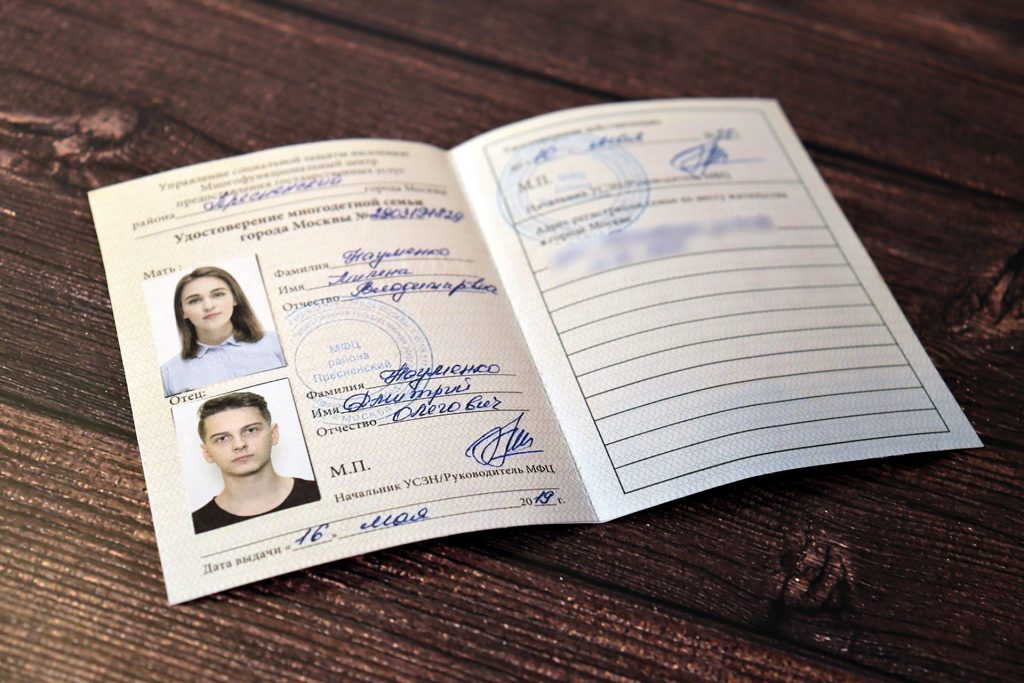 Управление социальной защиты населения/
Многофункциональный центр
предоставления государственных услуг
района Пресненский города Москвы
Удостоверение многодетной семьи
города Москвы №
Мать:
Фамилия Науменко
Имя Милена
Отчество
МФЦ
района
Пресненский
МОСКВА
Отец:
Фамилия Науменко
Имя Дмитрий
Отчество Олегович
М.П.
Начальник УСЗН/Руководитель МФЦ
Дата выдачи «16» мая 2019 г.
10 мая
М.П.
Начальник УСЗН/Руководитель МФЦ
Адрес регистрации по месту жительства
в городе Москве